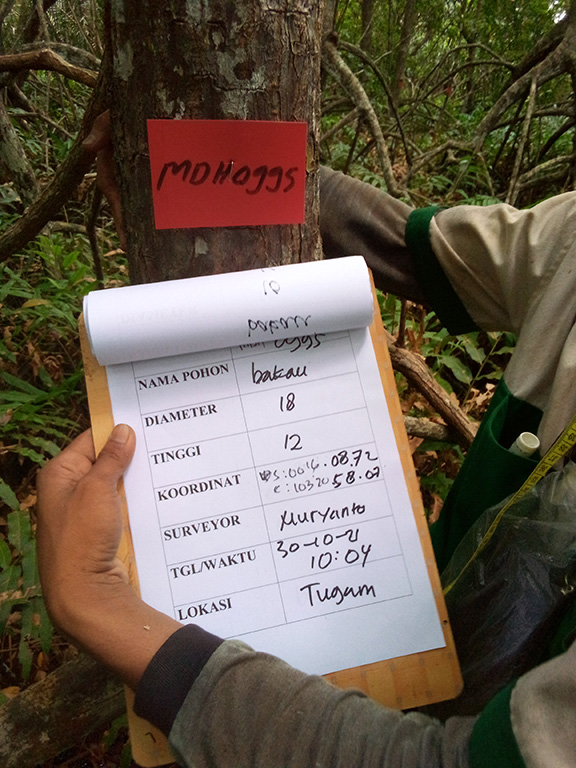 MDH0995
0995
NAMA POHON bakau
DIAMETER 18
TINGGI 12
KOORDINAT S:00°16.08.72
E:103°20 58.07
SURVEYOR Muryanto
TGL/WAKTU 30-10-21
10:04
LOKASI Tugam